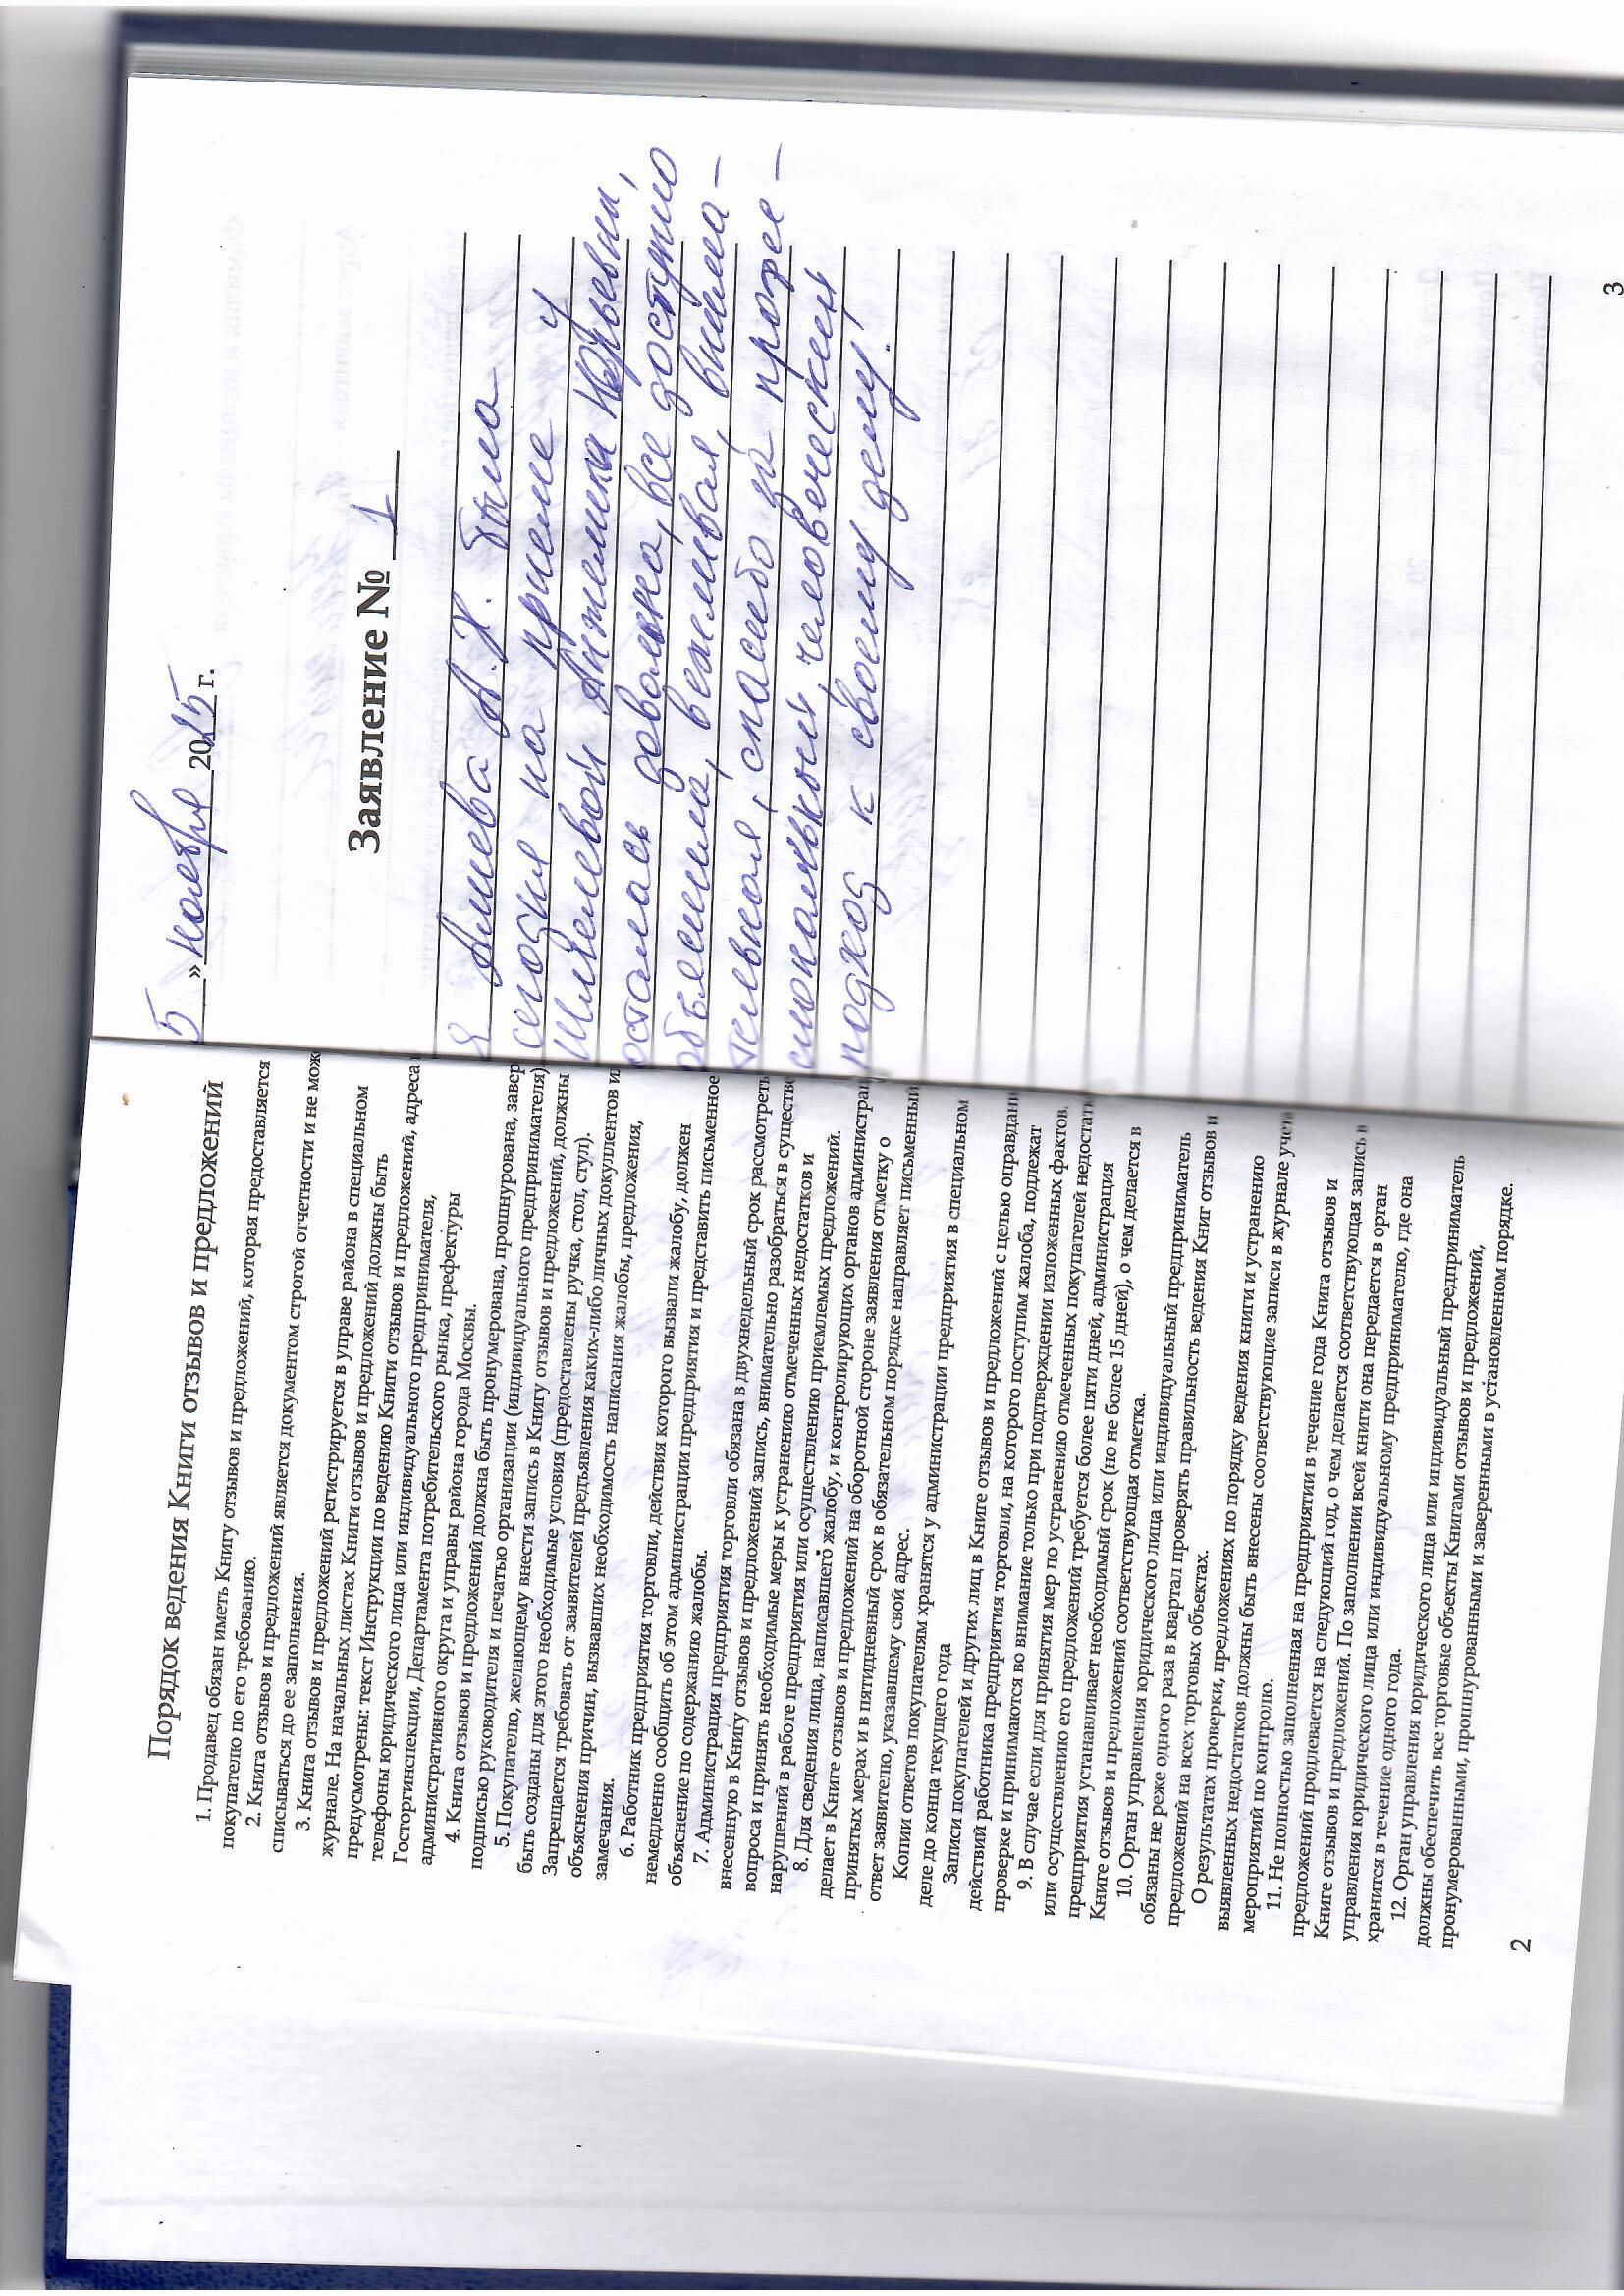 Порядок ведения Книги отзывов и предложений
1. Продавец обязан иметь Книгу отзывов и предложений, которая предоставляется
покупателю по его требованию.
2. Книга отзывов и предложений является документом строгой отчетности и не мож
списываться до ее заполнения.
3. Книга отзывов и предложений регистрируется в управе района в специальном
журнале. На начальных листах Книги отзывов и предложений должны быть
предусмотрены: текст Инструкции по ведению Книги отзывов и предложений, адреса
телефоны юридического лица или индивидуального предпринимателя,
Госторгинспекции, Департамента потребительского рынка, префектуры
административного округа и управы района города Москвы.
4. Книга отзывов и предложений должна быть пронумерована, прошнурована, завер
подписью руководителя и печатью организации (индивидуального предпринимателя)
5. Покупателю, желающему внести запись в Книгу отзывов и предложений, должны
быть созданы для этого необходимые условия (предоставлены ручка, стол, стул).
Запрещается требовать от заявителей предъявления каких-либо личных докуллентов и
объяснения причин, вызвавших необходимость написания жалобы, предложения,
замечания.
6. Работник предприятия торговли, действия которого вызвали жалобу, должен
немедленно сообщить об этом администрации предприятия и представить письменное
объяснение по содержанию жалобы.
7. Администрация предприятия торговли обязана в двухнедельный срок рассмотреть
внесенную в Книгу отзывов и предложений запись, внимательно разобраться в существ
вопроса и принять необходимые меры к устранению отмеченных недостатков и
нарушений в работе предприятия или осуществлению приемлемых предложений.
8. Для сведения лица, написавшего жалобу, и контролирующих органов администрац
делает в Книге отзывов и предложений на оборотной стороне заявления отметку о
принятых мерах и в пятидневный срок в обязательном порядке направляет письменный
ответ заявителю, указавшему свой адрес.
Копии ответов покупателям хранятся у администрации предприятия в специальном
деле до конца текущего года
Записи покупателей и других лиц в Книге отзывов и предложений с целью оправдани
действий работника предприятия торговли, на которого поступим жалоба, подлежат
проверке и принимаются во внимание только при подтверждении изложенных фактов.
9. В случае если для принятия мер по устранению отмеченных покупателей недостатк
или осуществлению его предложений требуется более пяти дней, администрация
предприятия устанавливает необходимый срок (но не более 15 дней), о чем делается в
Книге отзывов и предложений соответствующая отметка.
10. Орган управления юридического лица или индивидуальный предприниматель
обязаны не реже одного раза в квартал проверять правильность ведения Книг отзывов и
предложений на всех торговых объектах.
О результатах проверки, предложениях по порядку ведения книги и устранению
выявленных недостатков должны быть внесены соответствующие записи в журнале учета
мероприятий по контролю.
11. Не полностью заполненная на предприятии в течение года Книга отзывов и
предложений продлевается на следующий год, о чем делается соответствующая запись в
Книге отзывов и предложений. По заполнении всей книги она передается в орган
управления юридического лица или индивидуальному предпринимателю, где она
хранится в течение одного года.
12. Орган управления юридического лица или индивидуальный предприниматель
должны обеспечить все торговые объекты Книгами отзывов и предложений,
пронумерованными, прошнурованными и заверенными в установленном порядке.
2
5 » ноября 2025 г.
Заявление № 1
Я Алиева А.Х. была
сегодня на приеме у
Шмелевой Анжелики Юрьевны,
осталась довольна, все доступно
объяснила, вежливая, внима-
тельная, спасибо за профес-
сиональный, человеческий
подход к своему делу!
3